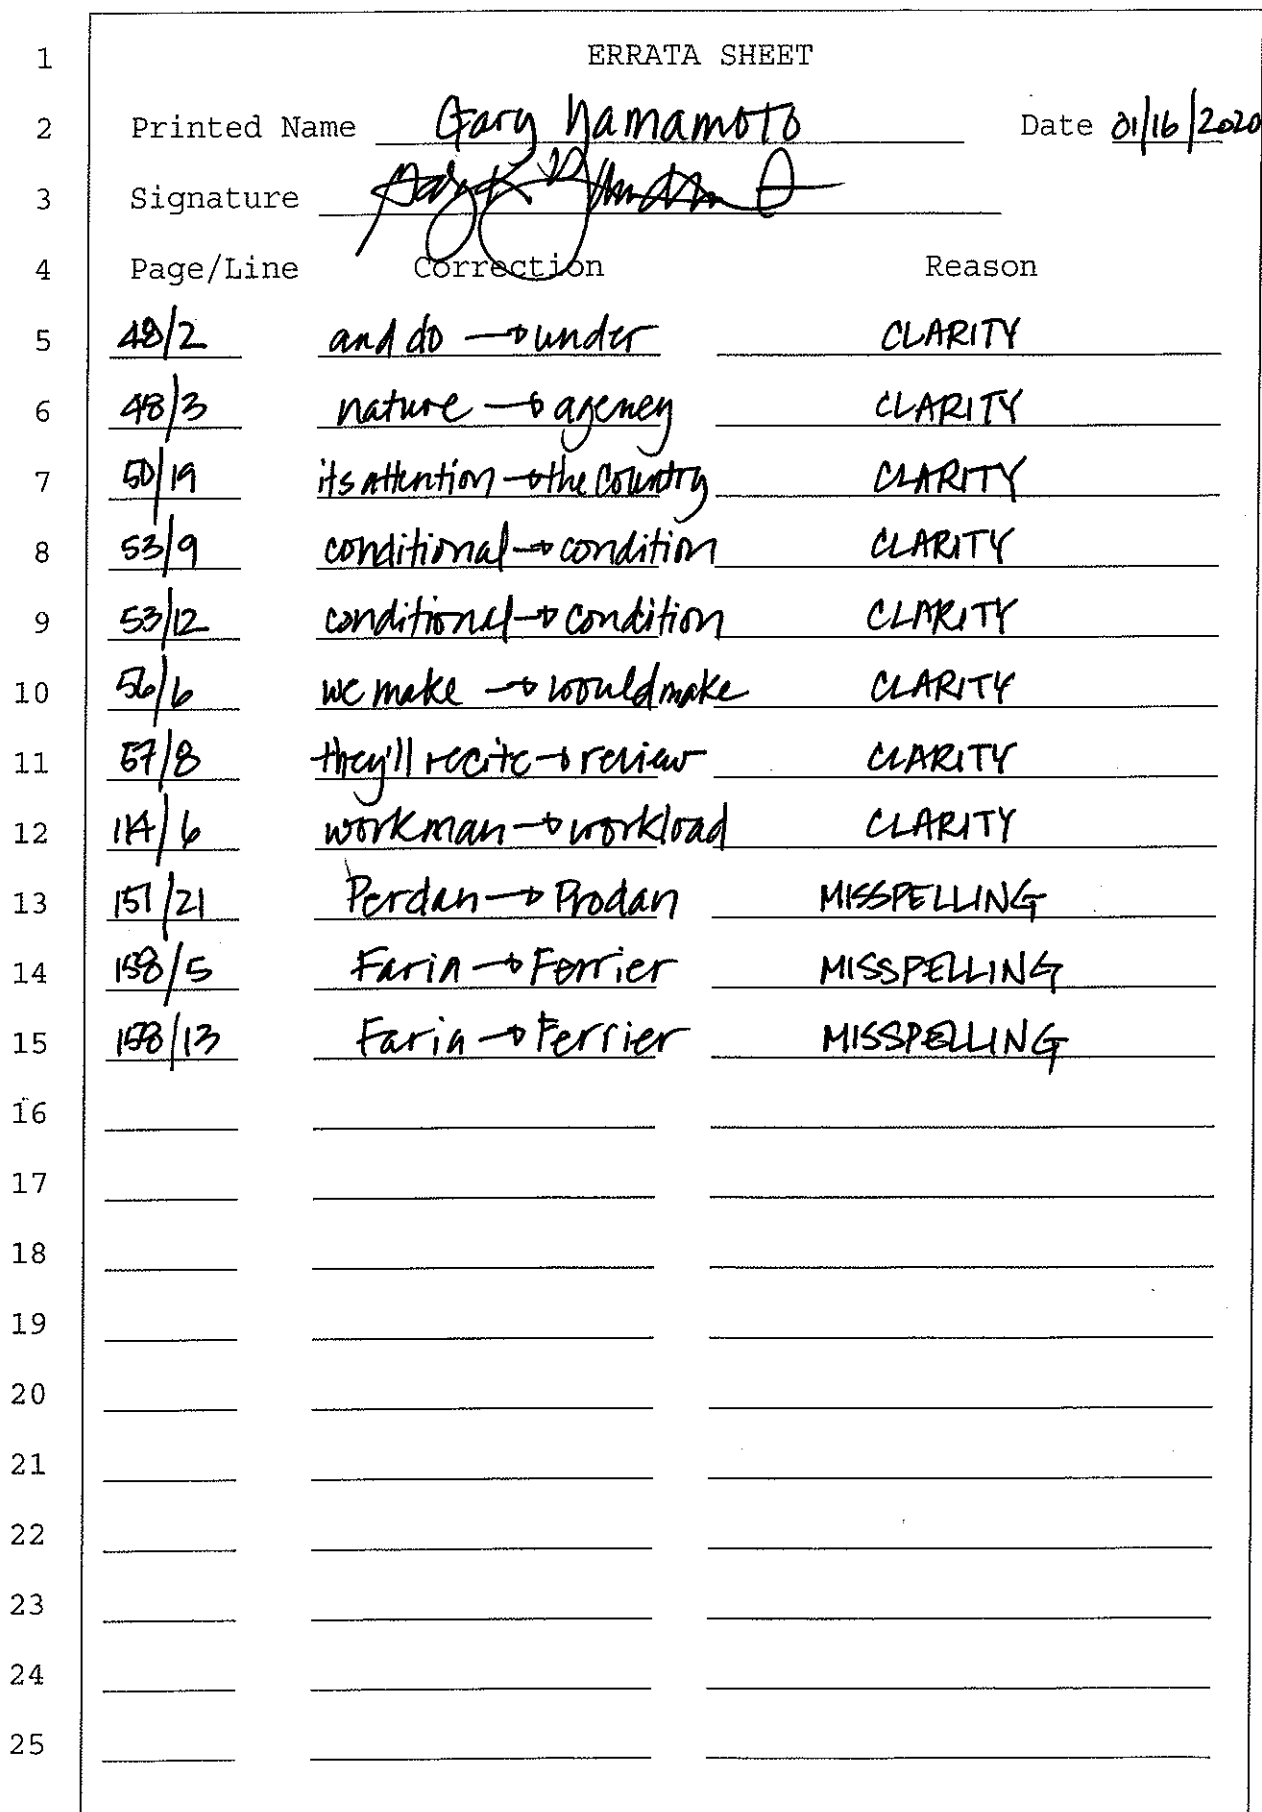 1 ERRATA SHEET
2 Printed Name Gary Yamamoto Date 01/16/2020
3 Signature
4 Page/Line Correction Reason
5 48/2 and do → under CLARITY
6 48/3 nature → agency CLARITY
7 50/19 its attention → the country CLARITY
8 53/9 conditional → condition CLARITY
9 53/12 conditional → condition CLARITY
10 56/6 we make → would make CLARITY
11 57/8 they'll recite → review CLARITY
12 114/6 workman → workload CLARITY
13 151/21 Perdan → Prodan MISSPELLING
14 158/5 Faria → Ferrier MISSPELLING
15 158/13 Faria → Ferrier MISSPELLING
16
17
18
19
20
21
22
23
24
25